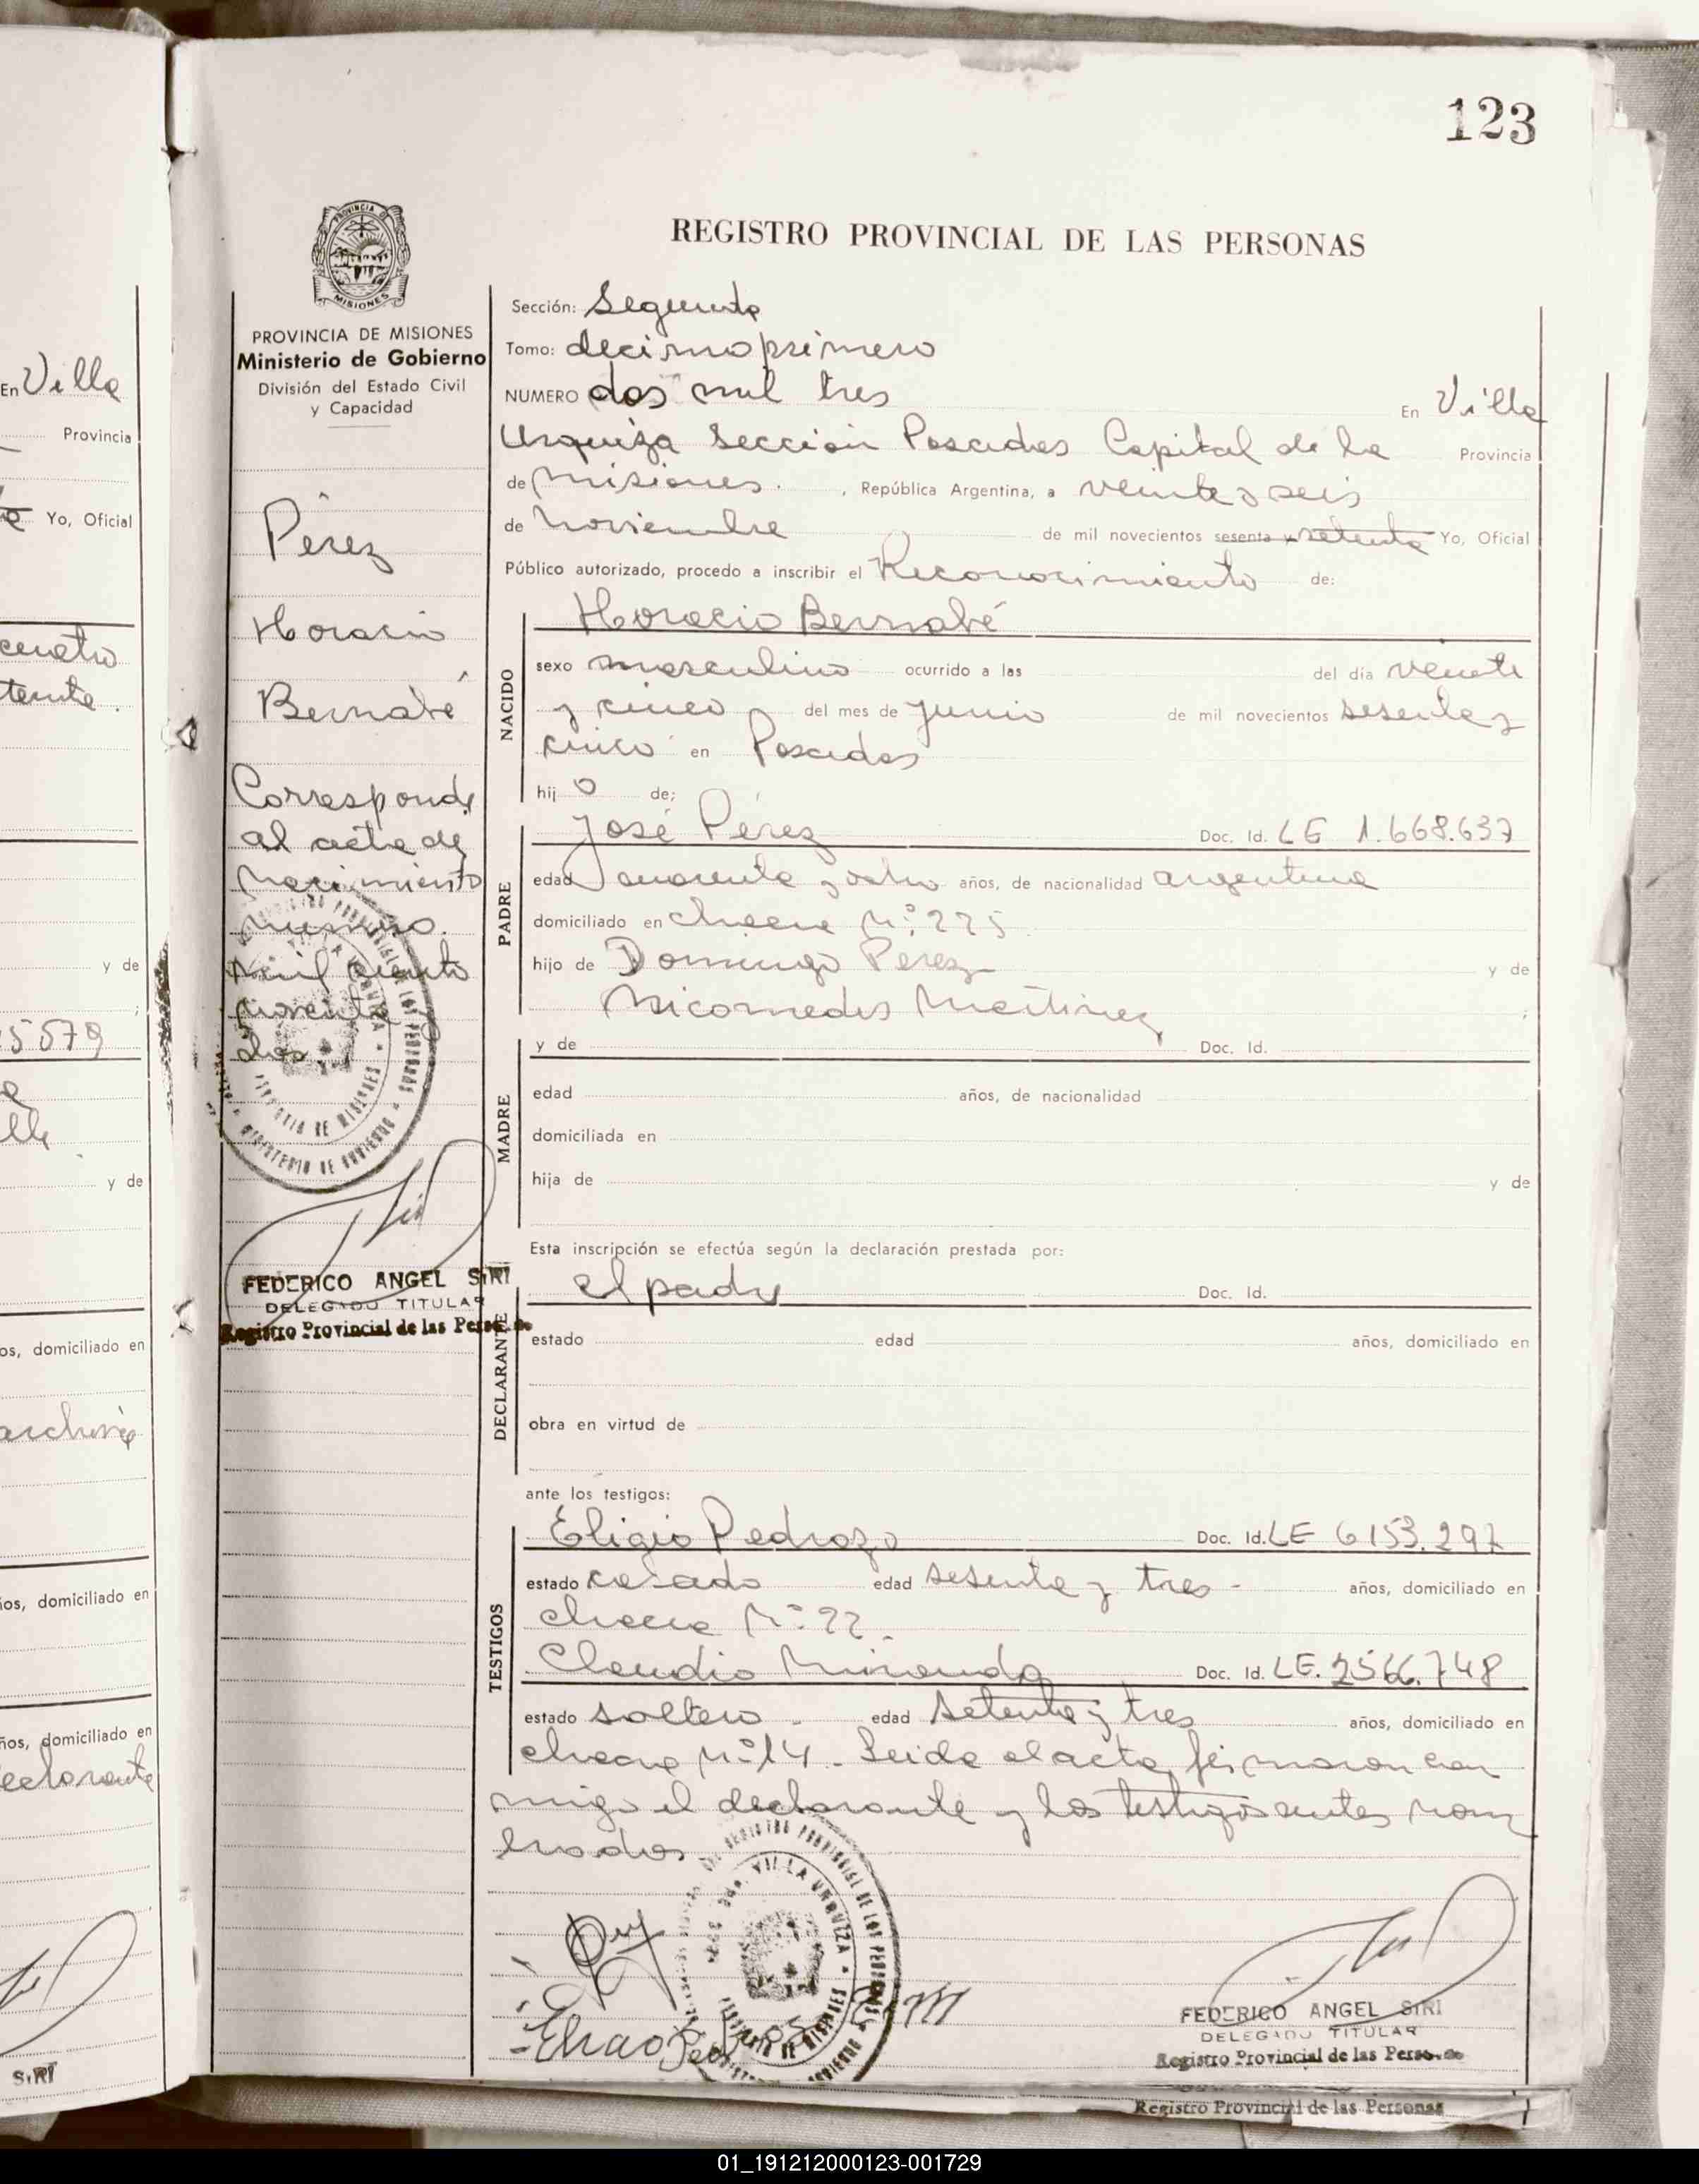 123
En Villa
Provincia
Yo, Oficial
y de
5579
y de
os, domiciliado en
archive
ños, domiciliado en
ños, domiciliado en
SIRI
PROVINCIA DE MISIONES
PROVINCIA DE MISIONES
Ministerio de Gobierno
División del Estado Civil
y Capacidad
Pérez
Horacio
Bernabé
Corresponde
al acta de
Nacimiento
número
mil ciento
noventa y
dos.
FEDERICO ANGEL SIRI
DELEGADO TITULAR
Registro Provincial de las Personas
REGISTRO PROVINCIAL DE LAS PERSONAS
Sección: Segunda
Tomo: decimo primero
NUMERO dos mil tres En Villa
Urquiza Sección Posadas Capital de la Provincia
de Misiones. , República Argentina, a veinte y seis
de noviembre de mil novecientos sesenta y setenta Yo, Oficial
Público autorizado, procedo a inscribir el Reconocimiento de:
NACIDO
Horacio Bernabé
sexo masculino ocurrido a las del día veinte
y cinco del mes de junio de mil novecientos sesenta y
cinco en Posadas
hij o de;
PADRE
José Pérez Doc. Id. LE 1.668.637
edad cuarenta y ocho años, de nacionalidad argentina
domiciliado en chacra Nº 225
hijo de Domingo Perez y de
Nicomedes Martinez ;
MADRE
y de Doc. Id.
edad años, de nacionalidad
domiciliada en
hija de y de
DECLARANTE
Esta inscripción se efectúa según la declaración prestada por:
el padre Doc. Id.
estado edad años, domiciliado en
obra en virtud de
TESTIGOS
ante los testigos:
Eligio Pedrozo Doc. Id. LE 6153.297
estado casado edad sesenta y tres - años, domiciliado en
chacra Nº 22.
Claudio Miranda Doc. Id. LE. 2566.748
estado soltero - edad setenta y tres años, domiciliado en
chacra Nº 14. Leida el acta, firmaron con
migo el declarante y los testigos antes nom
brados
VILLA URQUIZA
FEDERICO ANGEL SIRI
DELEGADO TITULAR
Registro Provincial de las Personas
Registro Provincial de las Personas
01_191212000123-001729